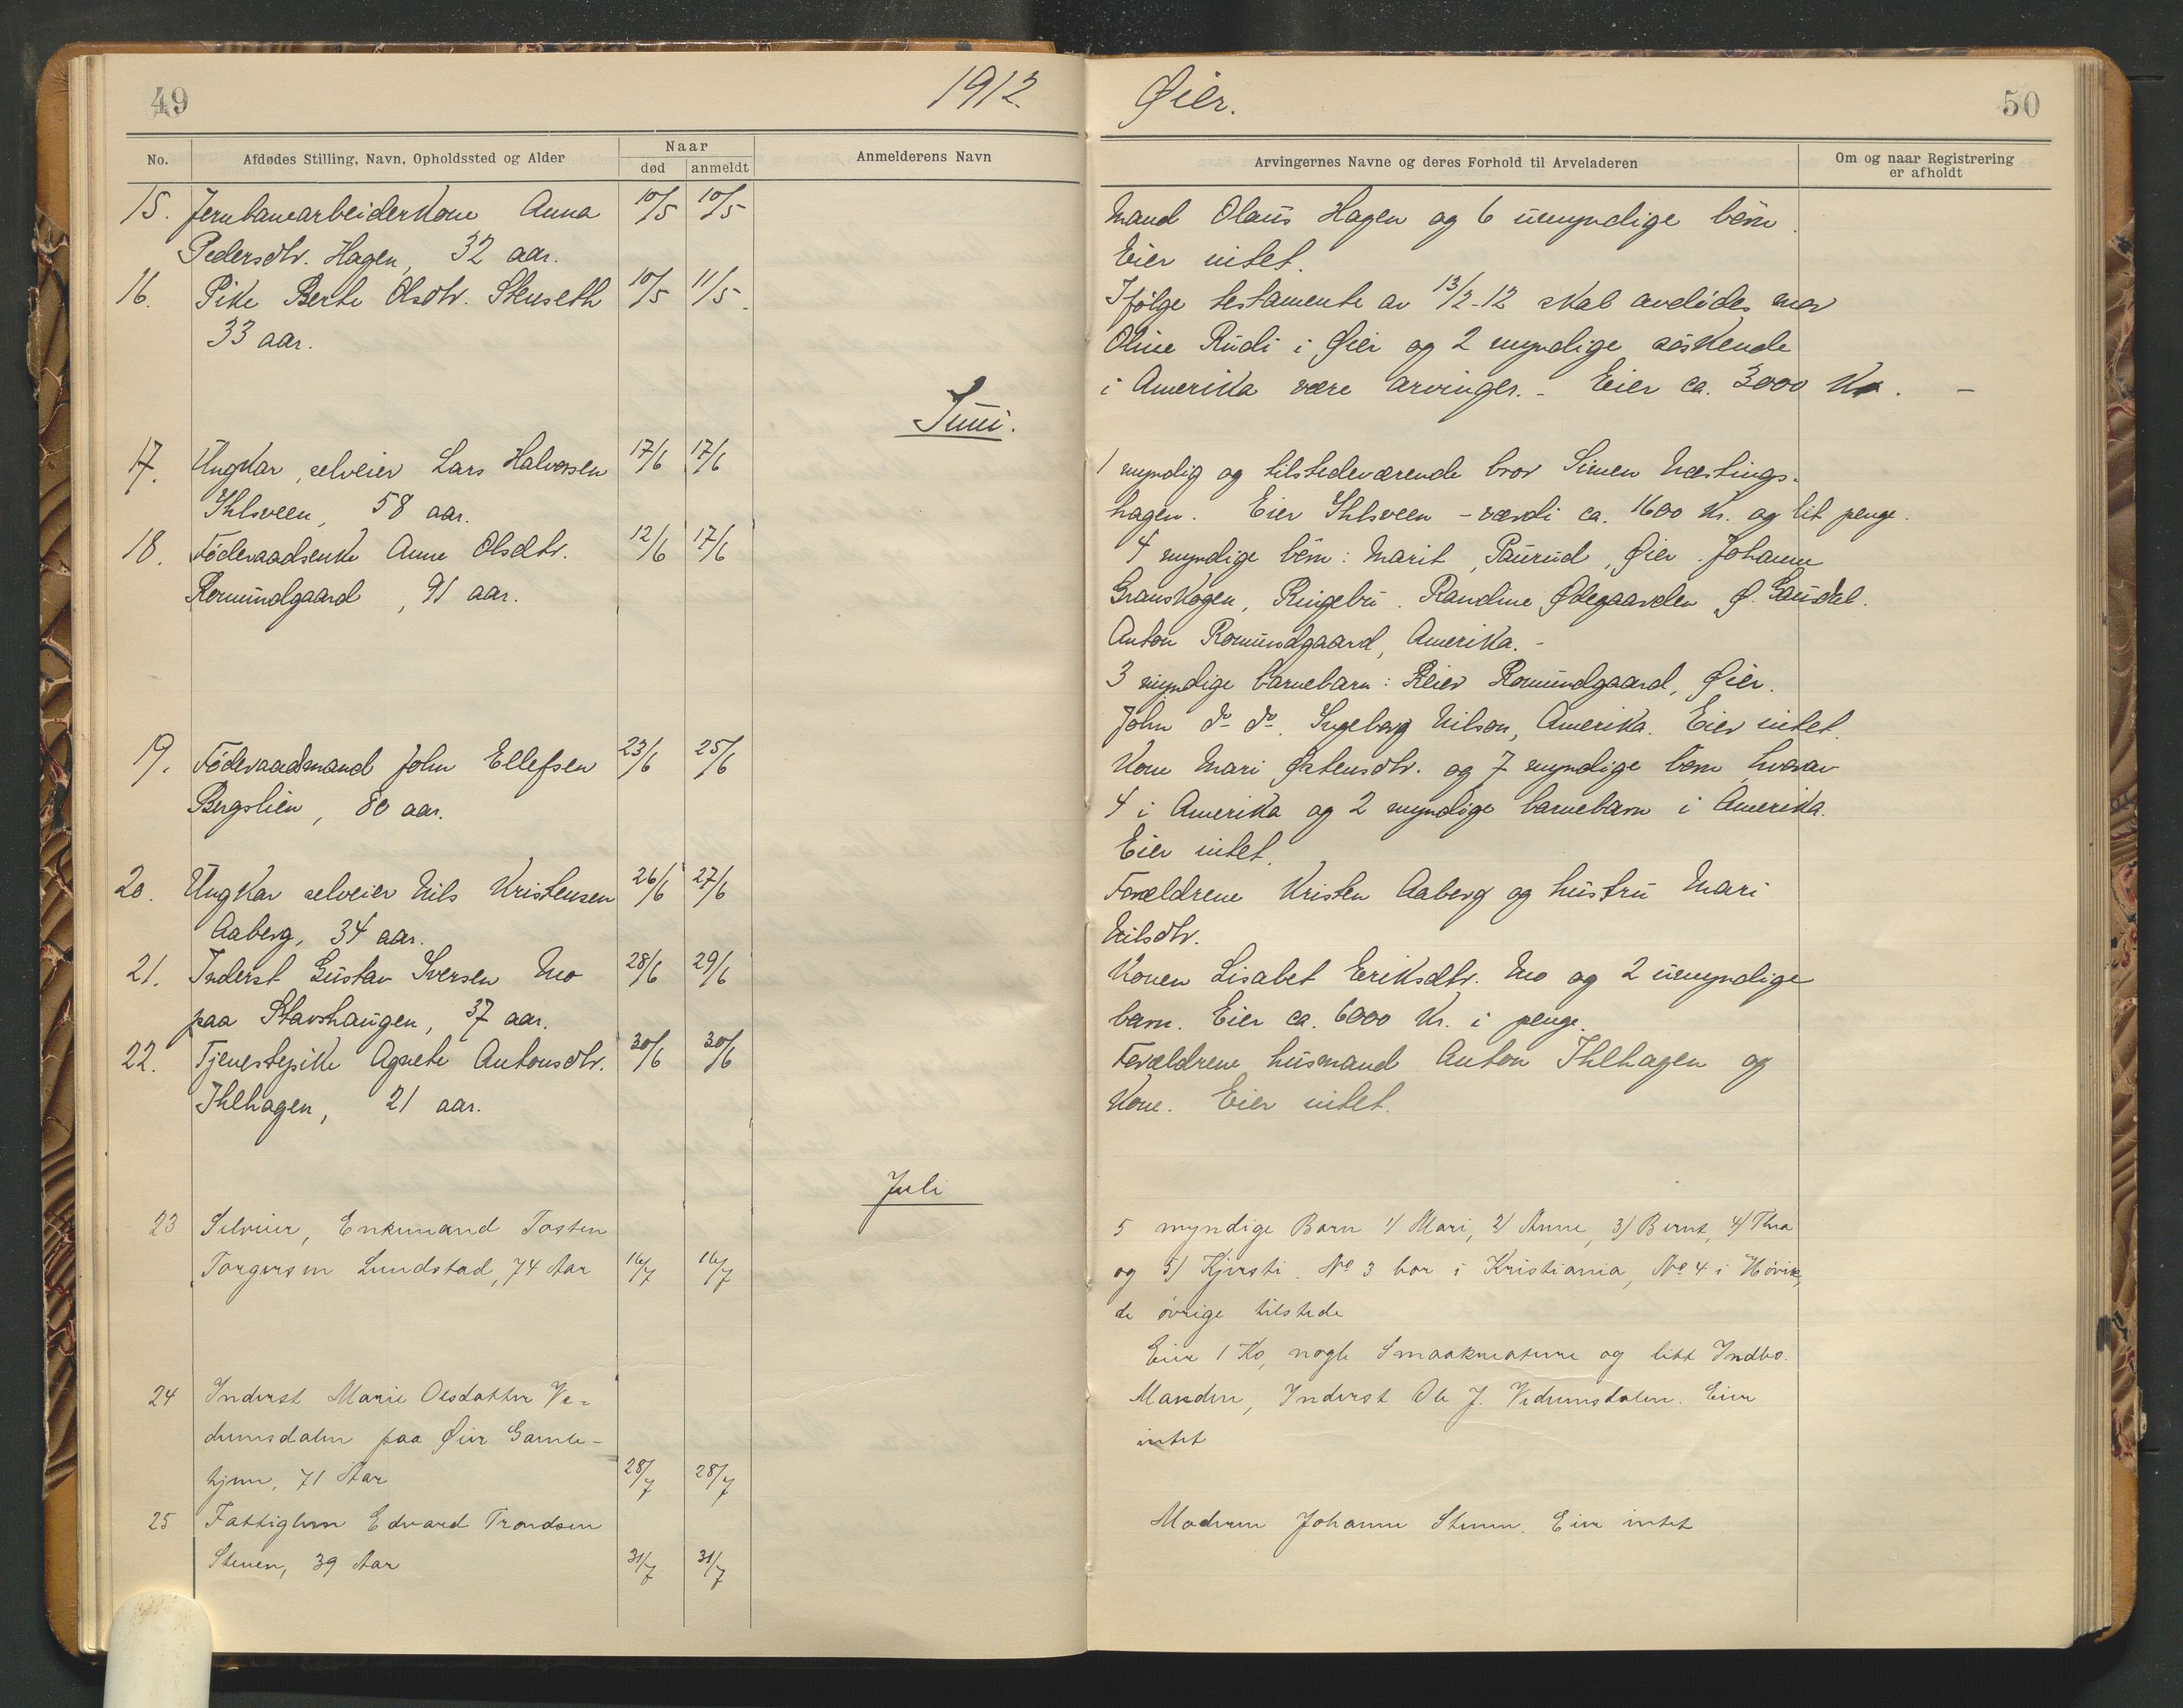 49
1912.
No.
Afdødes Stilling, Navn, Opholdssted og Alder
Naar
død
anmeldt
Anmelderens Navn
15. Jernbanearbeiderkone Anna 10/5 10/5
Pedersdtr. Hagen, 32 aar.
16. Pike Berte Olsdtr. Stenseth 10/5 11/5
33 aar.
Juni.
17. Ungkar, selveier Lars Halvorsen 17/6 17/6
Ihlsveen, 58 aar.
18. Føderaadsenke Anne Olsdtr. 12/6 17/6
Romundgaard, 91 aar.
19. Føderaadmand John Ellefsen 23/6 25/6
Bergslien, 80 aar.
20. Ungkar selveier Nils Kristensen 26/6 27/6
Aaberg, 34 aar.
21. Inderst Gustav Iversen Mo 28/6 29/6
paa Stavshaugen, 37 aar.
22. Tjenestepike Agnete Antonsdtr. 30/6 30/6
Ihlhagen, 21 aar.
Juli
23 Selveier, Enkemand Tosten
Torgersen Lundstad, 74 Aar 16/7 16/7
24 Inderst Marie Olsdatter Ve-
dumsdalen paa Øier Gamle-
hjem, 71 Aar 28/7 28/7
25 Fattiglem Edvard Trondsen
Stenen, 39 Aar 31/7 31/7
Øier.
50
Arvingernes Navne og deres Forhold til Arveladeren
Om og naar Registrering
er afholdt
Mand Olaus Hagen og 6 umyndige børn.
Eier intet.
Ifølge testamente av 13/2-12 skal avdødes mor
Oline Rudi i Øier og 2 myndige søskende
i Amerika være arvinger. - Eier ca. 3000 Kr. -
1 myndig og tilstedeværende bror Simen Næstings-
hagen. Eier Ihlsveen - værdi ca. 1600 Kr. og lit penge.
4 myndige børn: Marit, Paurud, Øier. Johanne
Granskogen, Ringebu. Randine Ødegaarden Ø. Gausdal.
Anton Romundgaard, Amerika. -
3 myndige barnebarn: Reier Romundgaard, Øier.
John do do. Ingeborg Nilson, Amerika. Eier intet.
Kone Mari Østensdtr. og 7 myndige børn hvorav
4 i Amerika og 2 myndige barnebarn i Amerika.
Eier intet.
Forældrene Kristen Aaberg og hustru Mari
Nilsdtr.
Konen Lisabet Eriksdtr. Mo og 2 umyndige
barn. Eier ca. 6000 Kr. i penge.
Forældrene husmand Anton Ihlhagen og
Kone. Eier intet.
5 myndige Barn 1) Mari, 2) Anne, 3) Bernt, 4) Thea
og 5) Kjersti. No 3 bor i Kristiania, No 4 i Høvik,
de øvrige tilstede
Eier 1 Ko, nogle Smaakreature og litt Indbo.
Manden, Inderst Ole J. Vedumsdalen. Eier
intet
Moderen Johanne Stenen. Eier intet